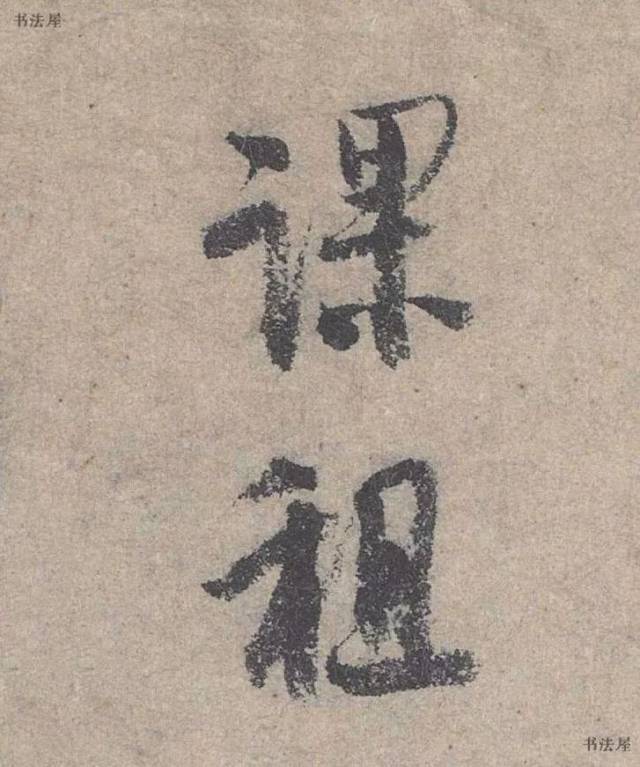 书法屋
课
租
书法屋